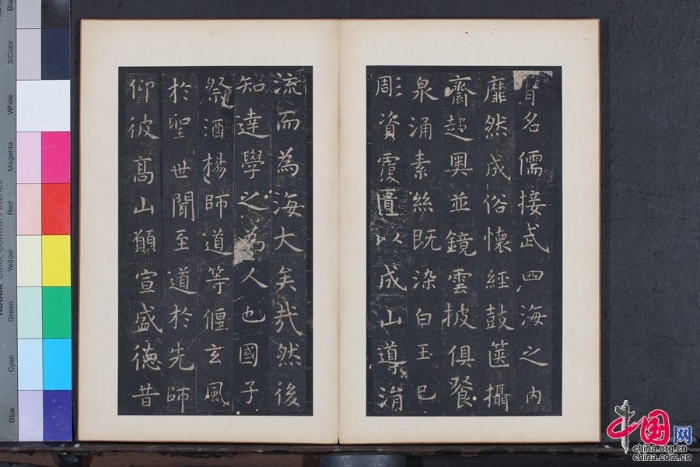 胄名儒接武四海之内
靡然成俗懷經鼓篋攝
齋趍奥並鏡雲披俱飡
泉涌素絲既染白玉已
彫資覆匱以成山導涓
流而為海大矣哉然後
知達學之為人也國子
祭酒楊師道等偃玄風
於聖世聞至道於先師
仰彼高山願宣盛德昔
Blue
Cyan
Green
Yellow
Red
Magenta
White
3/Color
Black
中国网
china.org.cn
china.com.cn